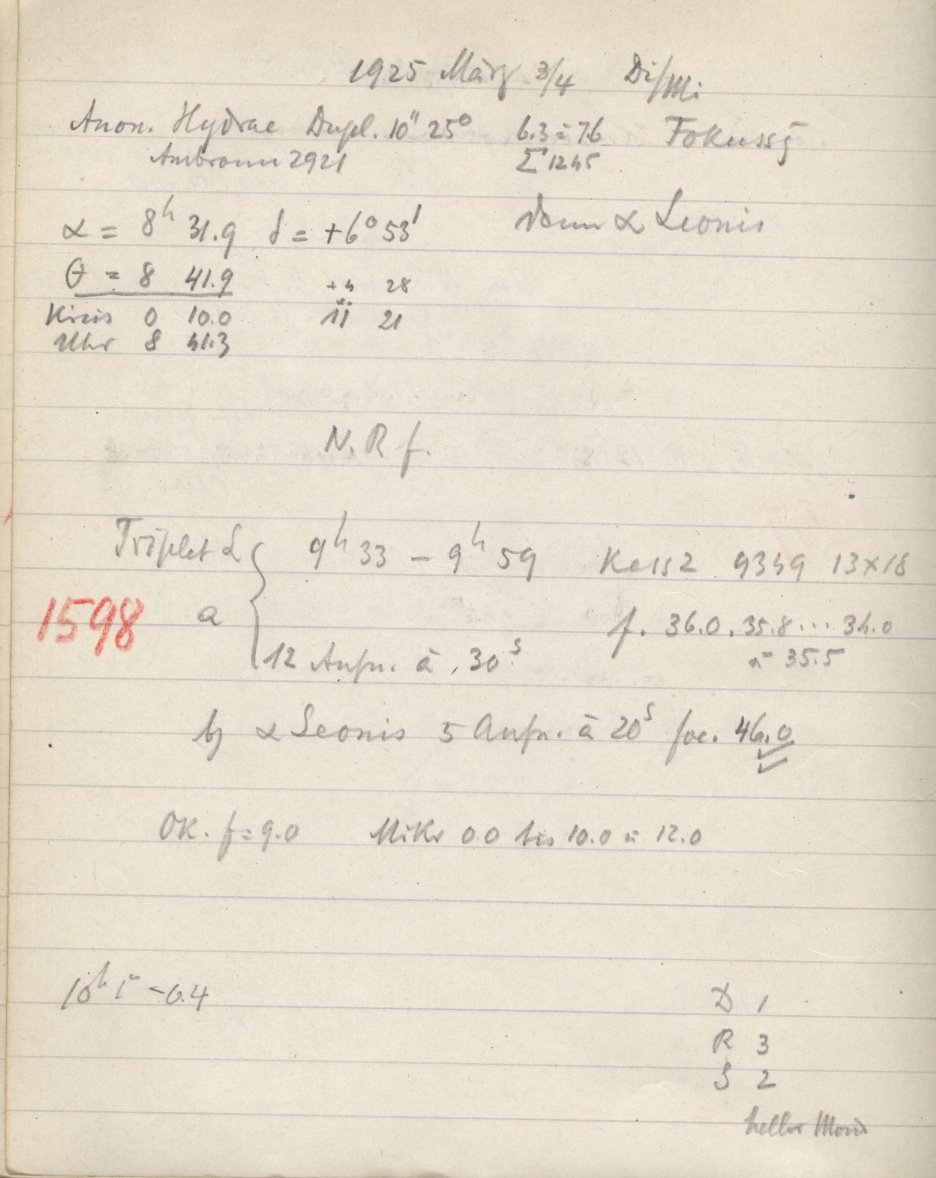 1925 März 3/4 Di/Mi
Anon. Hydrae Dupl. 10" 25° 6.3 ü 7.6
Ambronn 2921 Σ 1245
α = 8h 31.9 δ = +6° 53' dann α Leonis
θ = 8 41.9 +4 28
Kreis 0 10.0 11 21
Uhr 8 41.3
N. R f.
Triplet L 9h 33 – 9h 59 Kass 2 9349 13×18
1598 a f. 36.0, 35.8 ... 34.0
12 Aufn. à 30s ü 35.5
b) α Leonis 5 Aufn. à 20s foc. 46.0
OK. f = 9.0 Mikr 0.0 bis 10.0 ü 12.0
10h –0.4
D 1
R 3
S 2
heller Mond